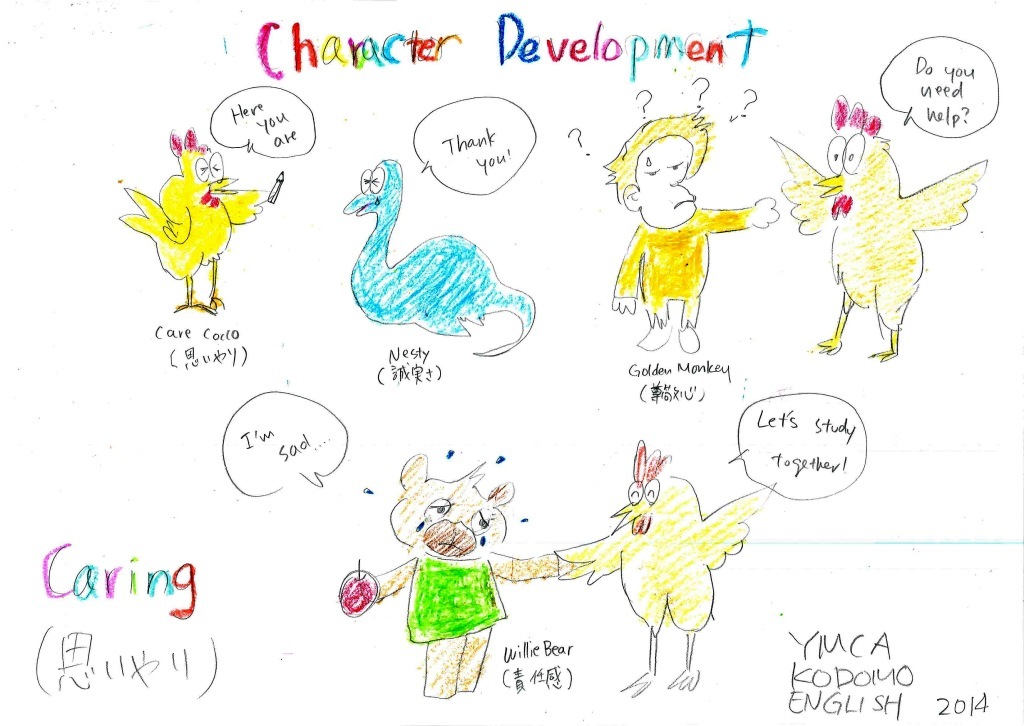 Character Development
Here
you
are
Thank
you!
? ? ? ?
Do you
need
help?
Care Cocco
(思いやり)
Nesty
(誠実さ)
Golden Monkey
I'm
sad....
Let's study
together!
Caring
(思いやり)
Willie Bear
(責任感)
YMCA
KODOMO
ENGLISH 2014